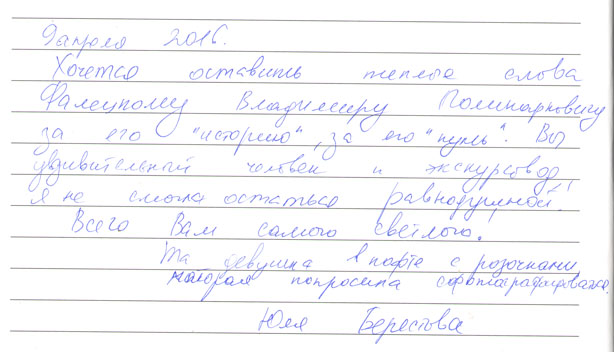 9 апреля 2016.
Хочется оставить теплые слова
Фалецкому Владимиру Поликарповичу
за его "историю", за его "путь". Вы
удивительный человек и экскурсовод!
Я не смогла остаться равнодушной.
Всего Вам самого светлого.
Та девушка в кофте с розочками,
которая попросила сфотографироваться.
Юля Берестова